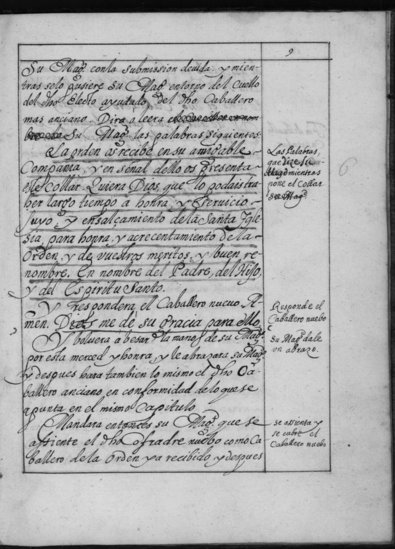 9
Su Mag.d con la submission devida. y mien-
tras solo pusiere su Mag.d entorno del cuello
del dho Electo ayudado del dho Caballero
mas anciano. Dira o leera
Su Mag.d las palabras siguientes
La orden os recibe en su amigable
Compañia, y en señal dello os presenta
este Collar. Quiera Dios, que lo podais tra-
her largo tiempo a honra, y servicio
suyo y ensalçamiento de la Santa Igle-
sia, para honra, y acrecentamiento de la
Orden, y de vuestros meritos, y buen re-
nombre. En nombre del Padre, del Hijo,
y del Espiritu Santo.
Y Respondera el Caballero nuevo. A-
men. Dios me de su gracia para ello.
Y volvera a besar la mano, de su Mag.d
por esta merced y honra, y le abrazara su Mag.d
y despues hara tambien lo mismo el dho Ca-
ballero anciano, en conformidad de lo que se
apunta en el mismo Capitulo.
Mandara entonces su Mag.d que se
assiente el dho cofradre nuebo como Ca-
ballero de la Orden ya recibido y despues
Las Palabras,
que dize Su
Mag.d mientras
pone el Collar
6
Responde el
Caballero nuebo
Su Mag.d da le
un abrazo.
se assienta y
se cubre el
Caballero nuebo